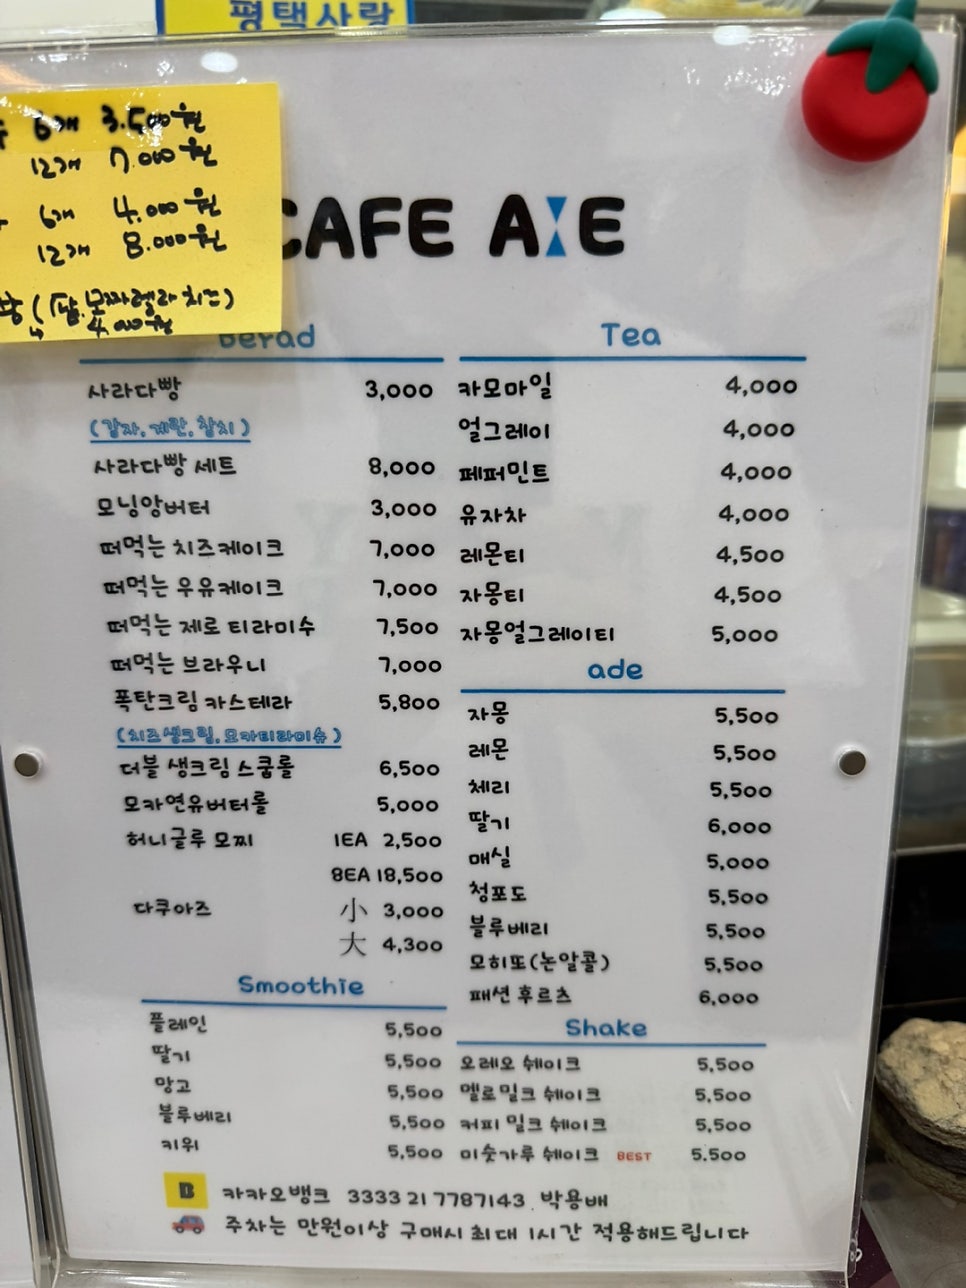 평택사랑
6개 3.500원
12개 7.000원
6개 4.000원
12개 8.000원
(팥.모짜렐라치즈)
4.000원
CAFE A E
Berad
사라다빵 3,000
(감자, 계란, 참치)
사라다빵 세트 8,000
모닝앙버터 3,000
떠먹는 치즈케이크 7,000
떠먹는 우유케이크 7,000
떠먹는 제로 티라미수 7,500
떠먹는 브라우니 7,000
폭탄크림 카스테라 5,800
(치즈생크림, 모카티라미슈)
더블 생크림 스쿱롤 6,500
모카연유버터롤 5,000
허니글루 모찌 1EA 2,500
8EA 18,500
다쿠아즈 小 3,000
大 4,300
Smoothie
플레인 5,500
딸기 5,500
망고 5,500
블루베리 5,500
키위 5,500
Tea
카모마일 4,000
얼그레이 4,000
페퍼민트 4,000
유자차 4,000
레몬티 4,500
자몽티 4,500
자몽얼그레이티 5,000
ade
자몽 5,500
레몬 5,500
체리 5,500
딸기 6,000
매실 5,000
청포도 5,500
블루베리 5,500
모히또(논알콜) 5,500
패션 후르츠 6,000
Shake
오레오 쉐이크 5,500
멜로밀크 쉐이크 5,500
커피 밀크 쉐이크 5,500
미숫가루 쉐이크 BEST 5.500
B 카카오뱅크 3333 21 7787143 박용배
주차는 만원이상 구매시 최대 1시간 적용해드립니다